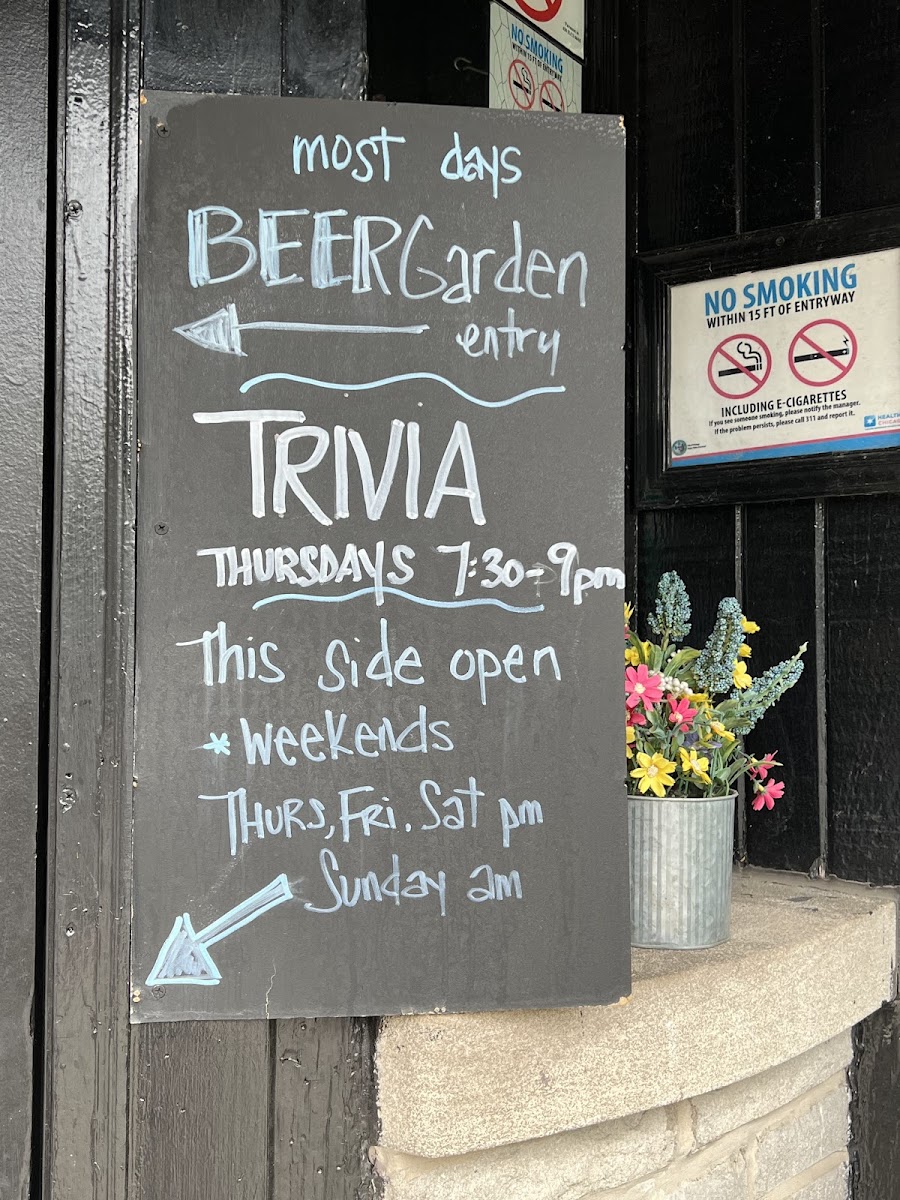 NO SMOKING
WITHIN 15 FT OF ENTRYWAY
most days
BEER Garden
entry
TRIVIA
THURSDAYS 7:30-9pm
This side open
*Weekends
THURS, FRi. Sat pm
Sunday am
NO SMOKING
WITHIN 15 FT OF ENTRYWAY
INCLUDING E-CIGARETTES
If you see someone smoking, please notify the manager.
If the problem persists, please call 311 and report it.